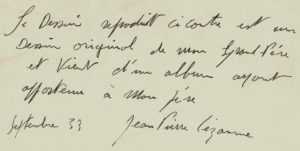 Le Dessin reproduit ci contre est un
Dessin original de mon Grand Père
et Vient d'un album ayant
appartenu à Mon père
Septembre 33 Jean Pierre Cézanne